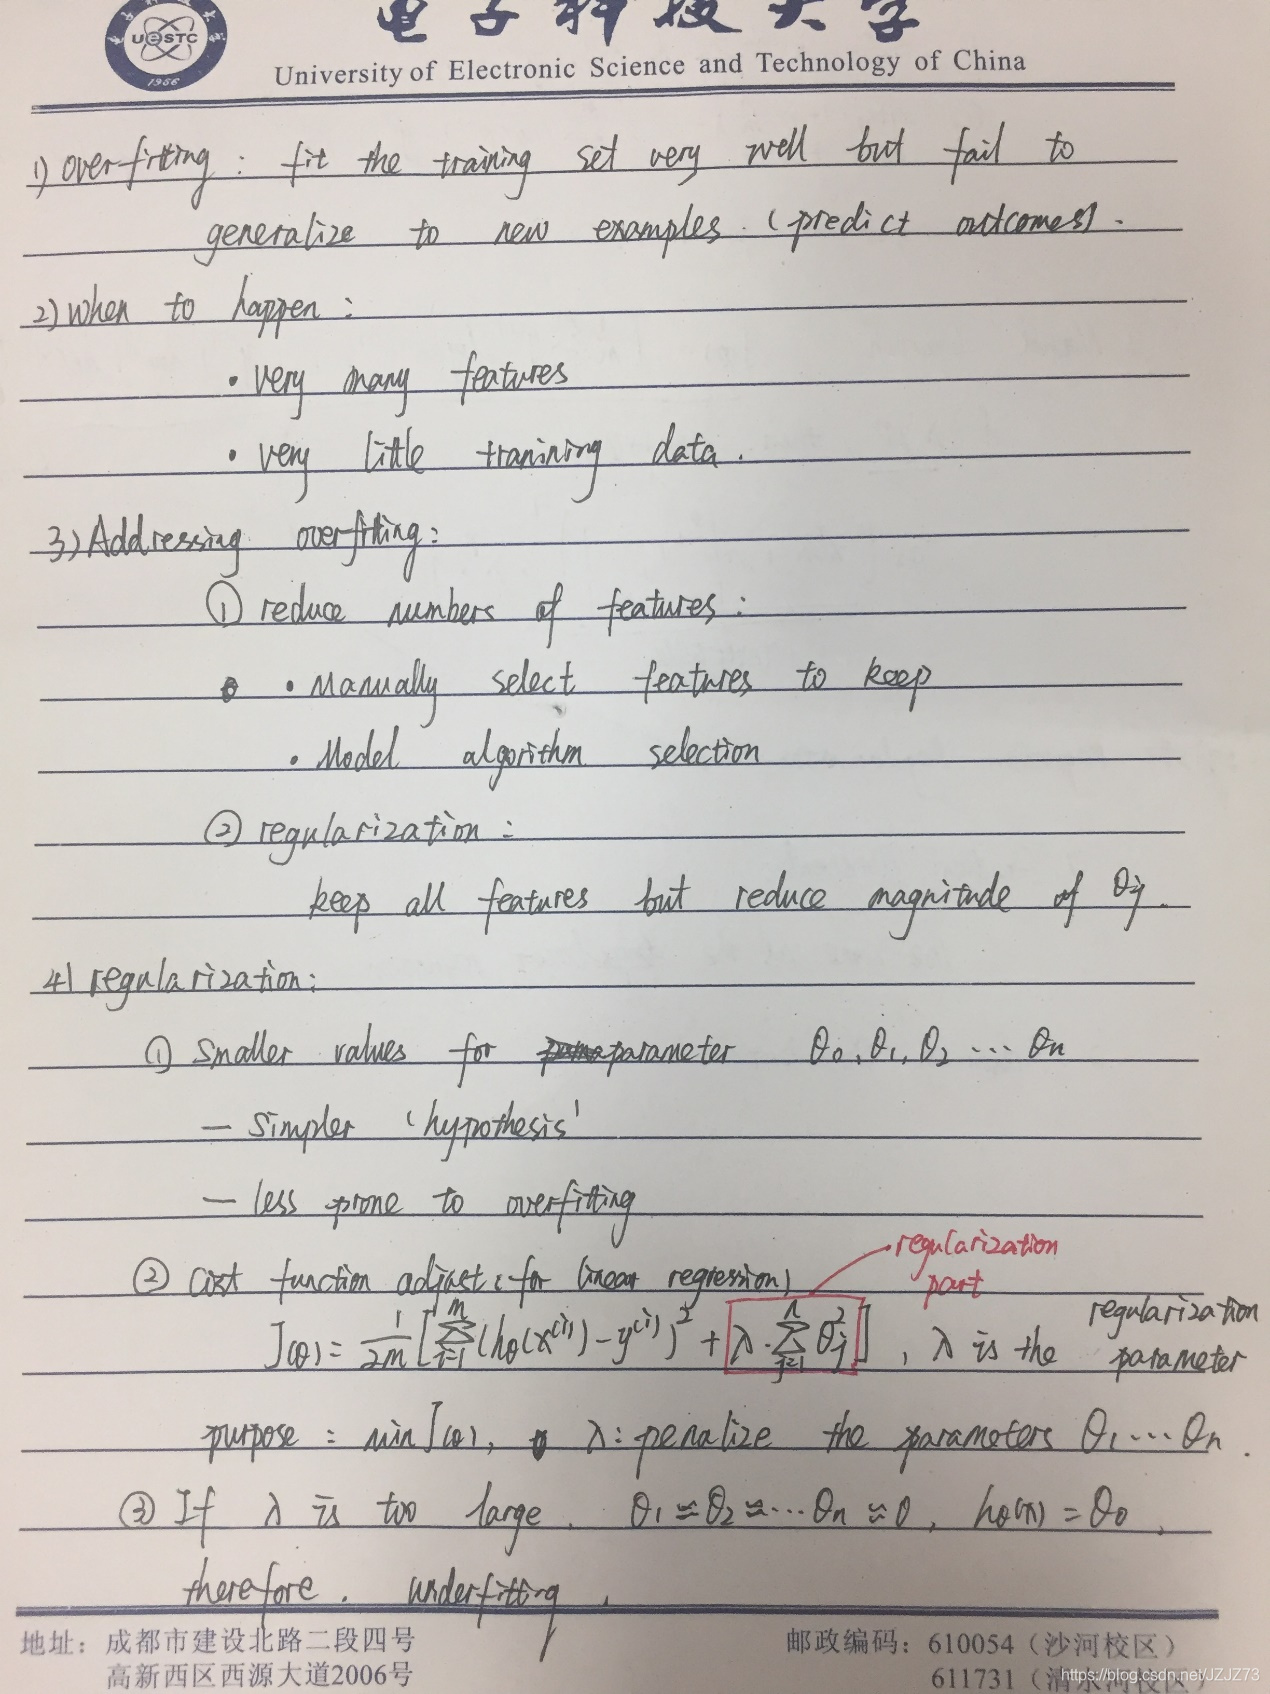 电子科技大学
UESTC
1956
University of Electronic Science and Technology of China
1) overfitting : fit the training set very well but fail to
generalize to new examples. (predict outcomes).
2) when to happen :
· very many features
· very little tranining data.
3) Addressing overfitting:
① reduce numbers of features :
· Manually select features to keep
· Model algorithm selection
② regularization :
keep all features but reduce magnitude of θj.
4) regularization:
① Smaller values for parameter θ0, θ1, θ2 ... θn
— Simpler 'hypothesis'
— less prone to overfitting
regularization
part
② Cost function adjust (for linear regression)
J(θ) = 1/2m [∑_{i=1}^{m} (hθ(x^(i)) - y^(i))^2 + λ·∑_{j=1}^{n} θj^2], λ is the regularization parameter
purpose : min J(θ), λ: penalize the parameters θ1 ... θn.
③ If λ is too large, θ1 ≈ θ2 ≈ ... θn ≈ 0, hθ(x) = θ0,
therefore. underfitting.
地址：成都市建设北路二段四号 邮政编码：610054（沙河校区）
高新西区西源大道2006号 611731（清水河校区）
https://blog.csdn.net/JZJZ73